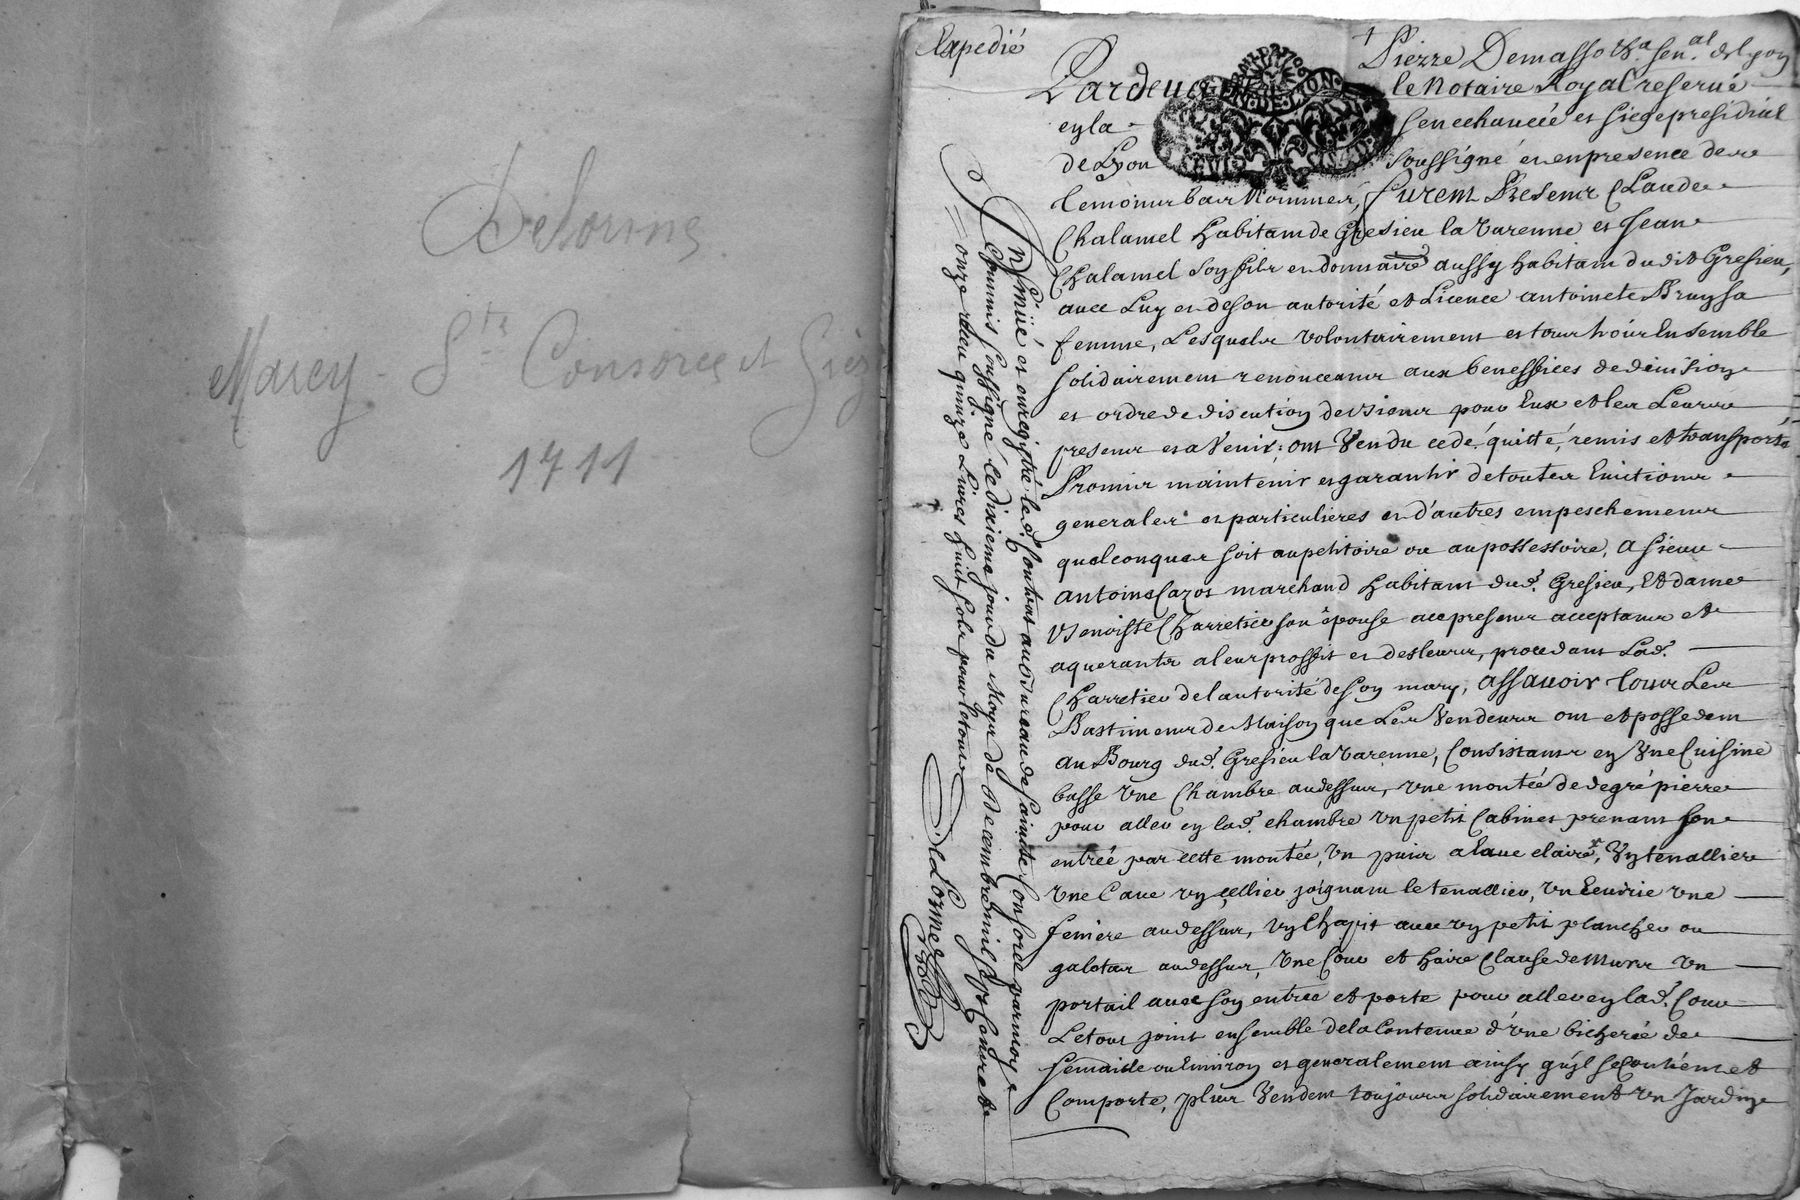 Delorme
Marcy - Ste Consorce et Gréz
1711
Expedié
Pierre Demasso Chr. senal. de Lyon
Pardevant le Notaire Royal reservé
en la Senechaucée et siege presidial
de Lyon soussigné et en presence des
temoins bas Nommés, furent Presents Claude
Chalamel habitant de Gresieu la Varenne et Jean
Chalamel son fils et donnaire aussy habitant dudit Gresieu,
avec Luy et de son autorité et Licence antoinete Bruysa
femme, Lesquels volontairement et tous trois Ensemble
solidairement renonceants aux benefices de division
et ordre de discution de Siens pour Eux et les Leurs
presents et a Venir; ont Vendu cedé quitté, remis et transporté
Promis maintenir et garantir de toutes Evictions
generales et particulieres et d'autres empeschements
quelconques soit au petitoire ou au possessoire, a sieur
antoine Cazot marchand habitant dud. Gresieu, Et dame
Benoiste Charretier son épouse acc presents acceptants et
aquerants a leur proffit et des leurs, procedant Lad.
Charretier de l'autorité de son mary, assavoir tous Les
Bastiments de Maison que Les Vendeurs ont et possedent
au Bourg dud. Gresieu la Varenne, Consistants en Une Cuisine
basse Une Chambre au dessus, Une montée de degré pierre
pour aller en lad. chambre Un petit Cabinet prenant son
entrée par cette montée, Un puits a Eaue claire, Un tenallier
Une Cave un cellier joignant le tenallier, Un Ecurie Une
feniere au dessus, Un Chapit avec un petit plancher ou
galatas au dessus, Une Cour et haire Clause de Murs Un
portail avec son entrée et porte pour aller en lad. Cour
Le tout joint ensemble de la Contenue d'Une bicherée de
semaille ou Environ et generalement ainsy qu'il se Contient et
Comporte, plus Vendent toujours solidairement Un Jardin
Insinüé et enregistré led. Contrat au Bureau de Sainte Consorce par moy
Commis soussigné le dixieme jour du Moys de Decembre mil sept Cent et
onze reçu quinze Livres huit sols pour le tout
DeLorme